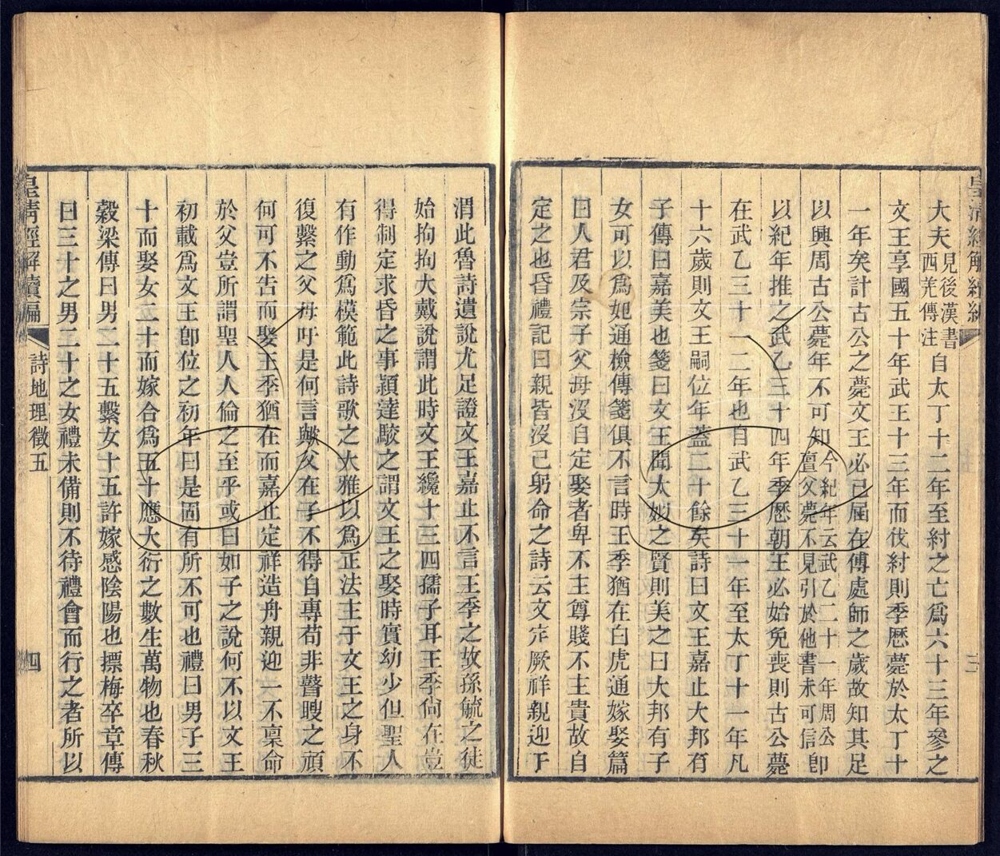 皇清經解續編
大夫見後漢書西羌傳注自太丁十二年至紂之亡爲六十三年參之
文王享國五十年武王十三年而伐紂則季歷薨於太丁十
一年矣計古公之薨文王必已屆在傅處師之歲故知其足
以興周古公薨年不可知今紀年云武乙二十一年周公亶父薨不見引於他書未可信卽
以紀年推之武乙三十四年季歷朝王必始免喪則古公薨
在武乙三十一二年也自武乙三十一年至太丁十一年凡
十六歲則文王嗣位年蓋二十餘矣詩曰文王嘉止大邦有
子傳曰嘉美也箋曰文王聞大姒之賢則美之曰大邦有子
女可以爲妃通檢傳箋俱不言時王季猶在白虎通嫁娶篇
曰人君及宗子父母沒自定娶者卑不主尊賤不主貴故自
定之也昏禮記曰親皆沒己躬命之詩云文定厥祥親迎于
渭此魯詩遺說尤足證文王嘉止不言王季之故孫毓之徒
始拘拘大戴說謂此時文王纔十三四孺子耳王季尙在豈
得制定求昏之事穎達駮之謂文王之娶時實幼少但聖人
有作動爲模範此詩歌之大雅以爲正法主于文王之身不
復繫之父母吁是何言歟父在子不得自專苟非瞽瞍之頑
何可不告而娶王季猶在而嘉止定祥造舟親迎一不稟命
於父豈所謂聖人人倫之至乎或曰如子之說何不以文王
初載爲文王卽位之初年曰是固有所不可也禮曰男子三
十而娶女二十而嫁合爲五十應大衍之數生萬物也春秋
穀梁傳曰男二十五繫女十五許嫁感陰陽也摽梅卒章傳
曰三十之男二十之女禮未備則不待禮會而行之者所以
皇清經解續編
詩地理徵五
四